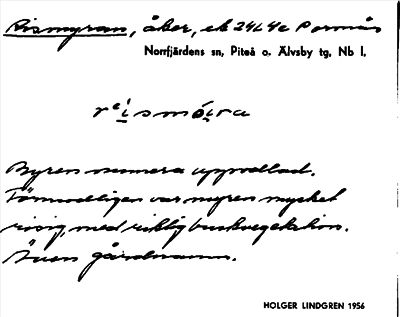 Rismyran, åker, ek 24L4c Porsnäs
Norrfjärdens sn, Piteå o. Älvsby tg, Nb l.
reismóira
Myren numera uppodlad.
Förmodligen var myren mycket
risig, med riklig buskvegetation.
Även gårdnamn.
HOLGER LINDGREN 1956